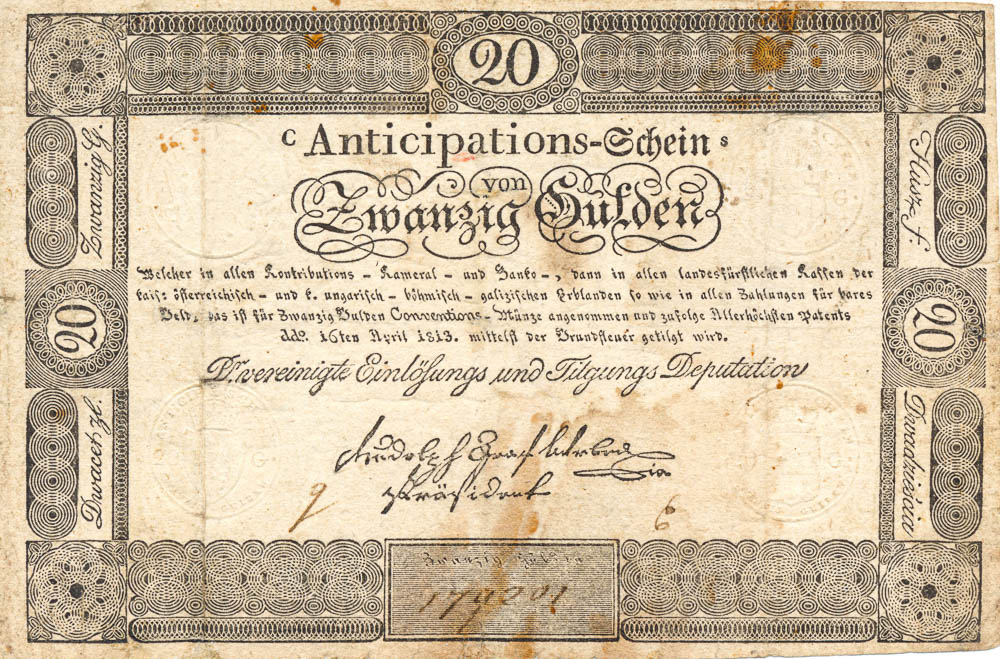 20
c Anticipations-Schein s
von
Zwanzig Gulden
Welcher in allen Kontributions - Kameral - und Banko -, dann in allen landesfürstlichen Kassen der
kais: österreichisch - und k. ungarisch - böhmisch - galizischen Erblanden so wie in allen Zahlungen für bares
Geld, das ist für Zwanzig Gulden Conventions - Münze angenommen und zufolge Allerhöchsten Patents
ddo. 16ten April 1813. mittelst der Grundsteuer getilgt wird.
Dr. vereinigte Einlösungs und Tilgungs Deputation
Rudolph Graf
Präsident
Zwanzig G.
20
Husz f.
20
Zwanzig Gulden